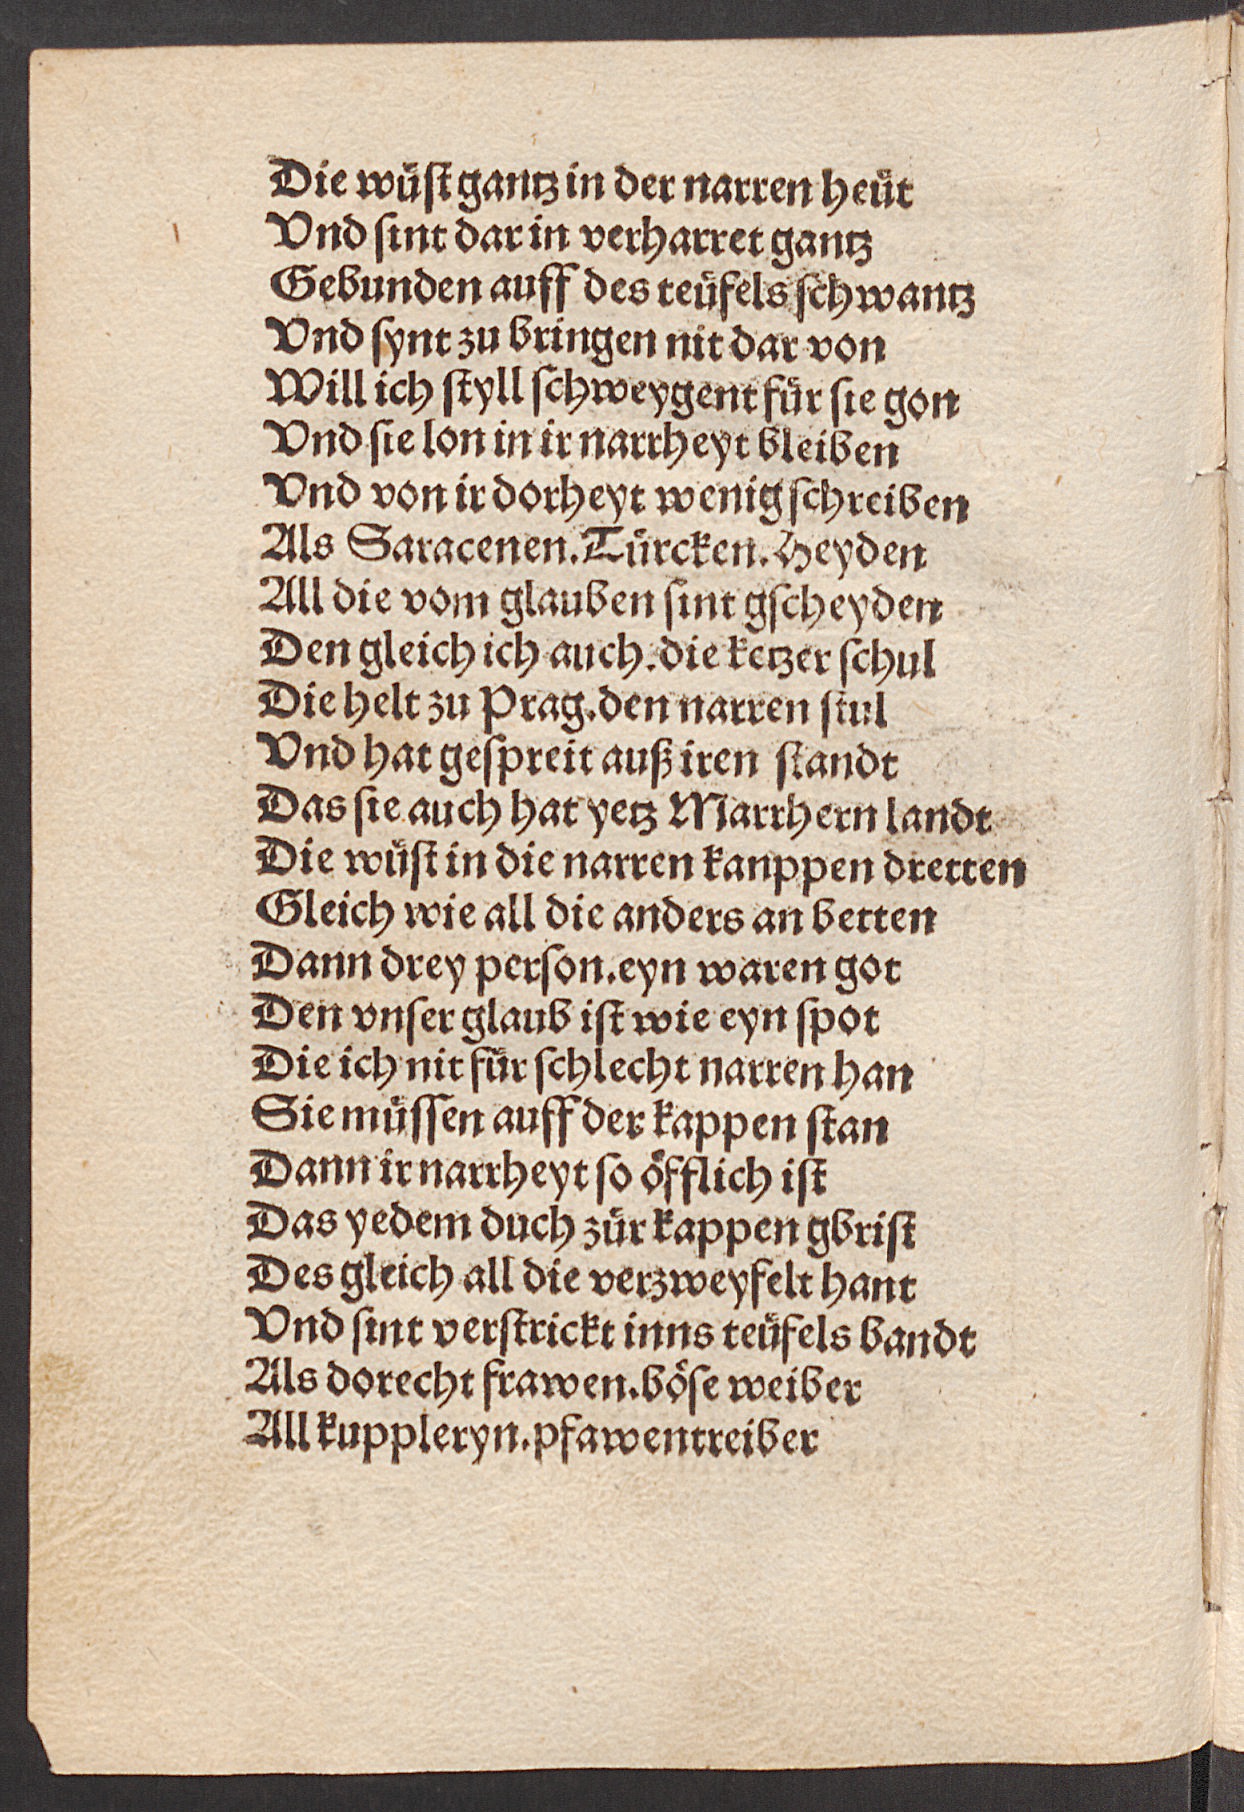 Die wüſt gantz in der narren heüt
Vnd ſint dar in verharret gantz
Gebunden auff des teüfels ſchwantz
Vnd ſynt zu bringen nit dar von
Will ich ſtyll ſchweygent für ſie gon
Vnd ſie lon in ir narrheyt bleiben
Vnd von ir dorheyt wenig ſchreiben
Als Saracenen. Türcken. Heyden
All die vom glauben ſint gſcheyden
Den gleich ich auch. die ketzer ſchul
Die helt zu Prag. den narren ſtul
Vnd hat geſpreit auß iren ſtandt
Das ſie auch hat yetz Marrhern landt
Die wüſt in die narren kanppen dretten
Gleich wie all die anders an betten
Dann drey perſon. eyn waren got
Den vnſer glaub iſt wie eyn ſpot
Die ich nit für ſchlecht narren han
Sie müſſen auff der kappen ſtan
Dann ir narrheyt ſo öfflich iſt
Das yedem duch zür kappen gbriſt
Des gleich all die verzweyfelt hant
Vnd ſint verſtrickt inns teüfels bandt
Als dorecht frawen. böſe weiber
All kuppleryn. pfawentreiber